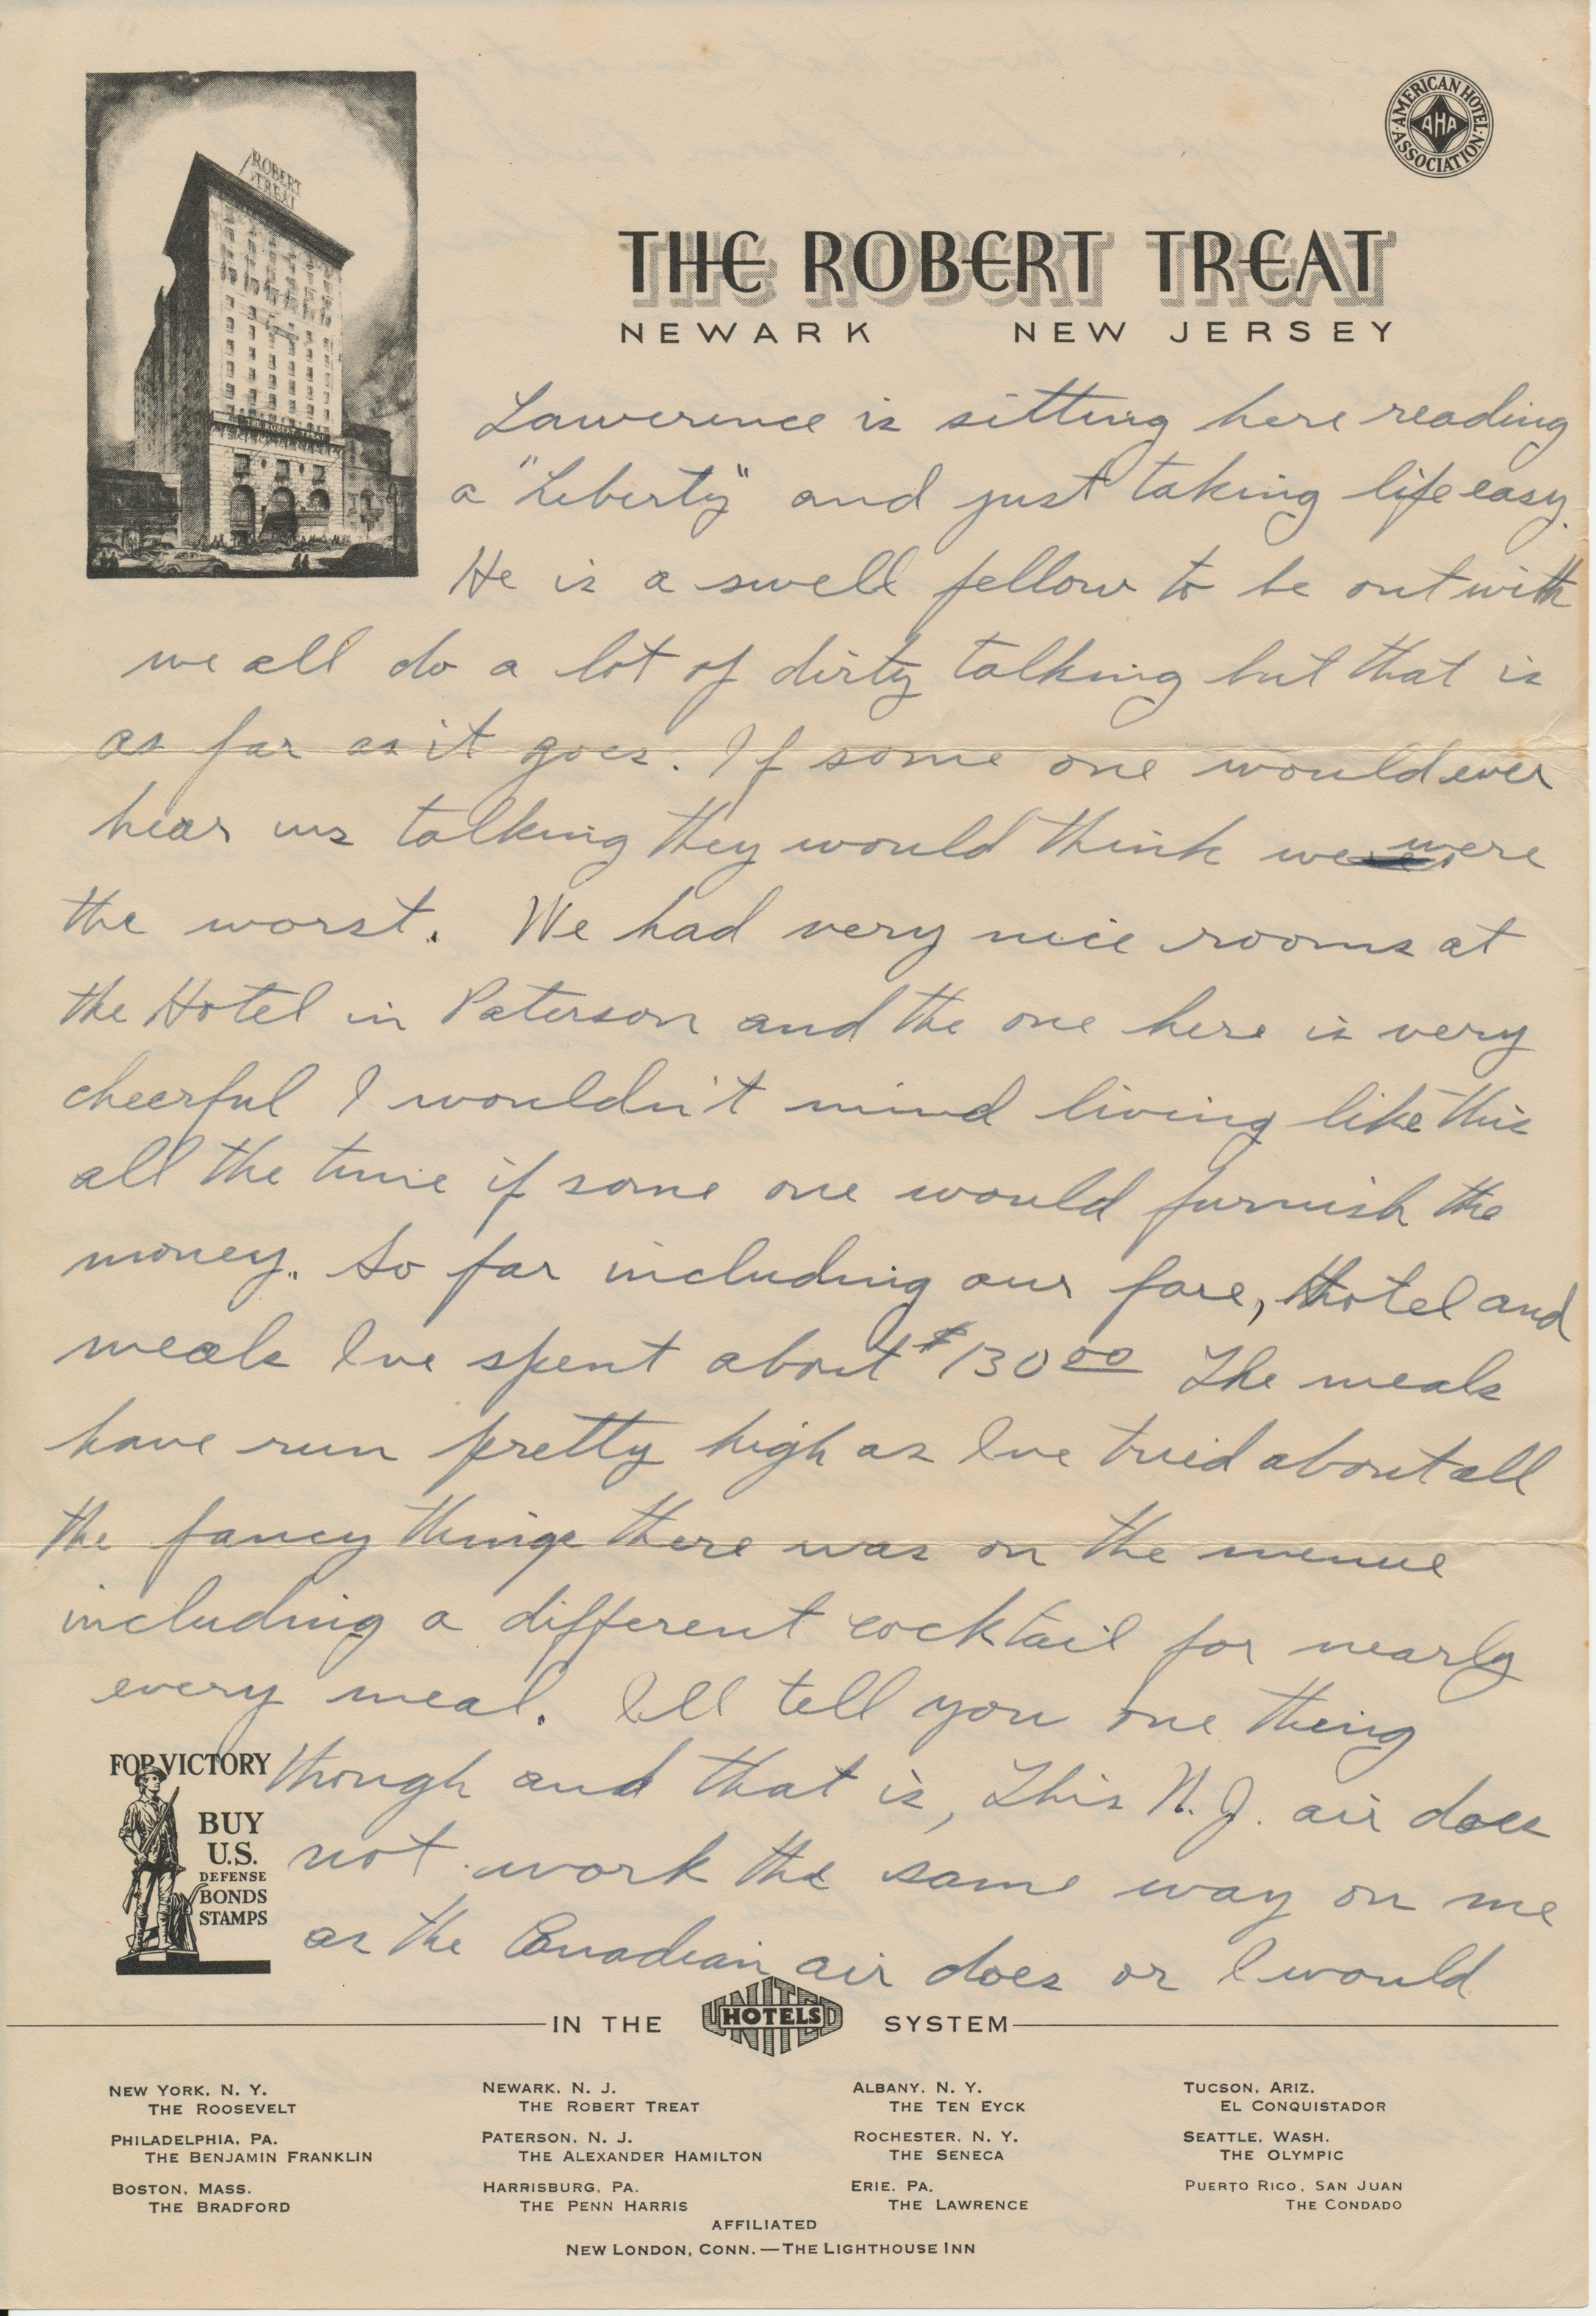 ROBERT
TREAT
THE ROBERT TREAT
AMERICAN HOTEL ASSOCIATION
AHA
THE ROBERT TREAT
NEWARK NEW JERSEY
Lawerence is sitting here reading
a "Liberty" and just taking life easy.
He is a swell fellow to be out with
we all do a lot of dirty talking but that is
as far as it goes. If some one would ever
hear us talking they would think we were
the worst. We had very nice rooms at
the Hotel in Paterson and the one here is very
cheerful I wouldn't mind living like this
all the time if some one would furnish the
money. So far including our fare, Hotel and
meals Ive spent about $130 00 The meals
have run pretty high as Ive tried about all
the fancy things there was on the menue
including a different cocktail for nearly
every meal. Ill tell you one thing
though and that is, This N.J. air does
not work the same way on me
as the Canadian air does or I would
FOR VICTORY
BUY
U.S.
DEFENSE
BONDS
STAMPS
IN THE UNITED HOTELS SYSTEM
NEW YORK, N. Y.
THE ROOSEVELT
PHILADELPHIA, PA.
THE BENJAMIN FRANKLIN
BOSTON, MASS.
THE BRADFORD
NEWARK, N. J.
THE ROBERT TREAT
PATERSON, N. J.
THE ALEXANDER HAMILTON
HARRISBURG, PA.
THE PENN HARRIS
ALBANY, N. Y.
THE TEN EYCK
ROCHESTER, N. Y.
THE SENECA
ERIE, PA.
THE LAWRENCE
TUCSON, ARIZ.
EL CONQUISTADOR
SEATTLE, WASH.
THE OLYMPIC
PUERTO RICO, SAN JUAN
THE CONDADO
AFFILIATED
NEW LONDON, CONN.—THE LIGHTHOUSE INN